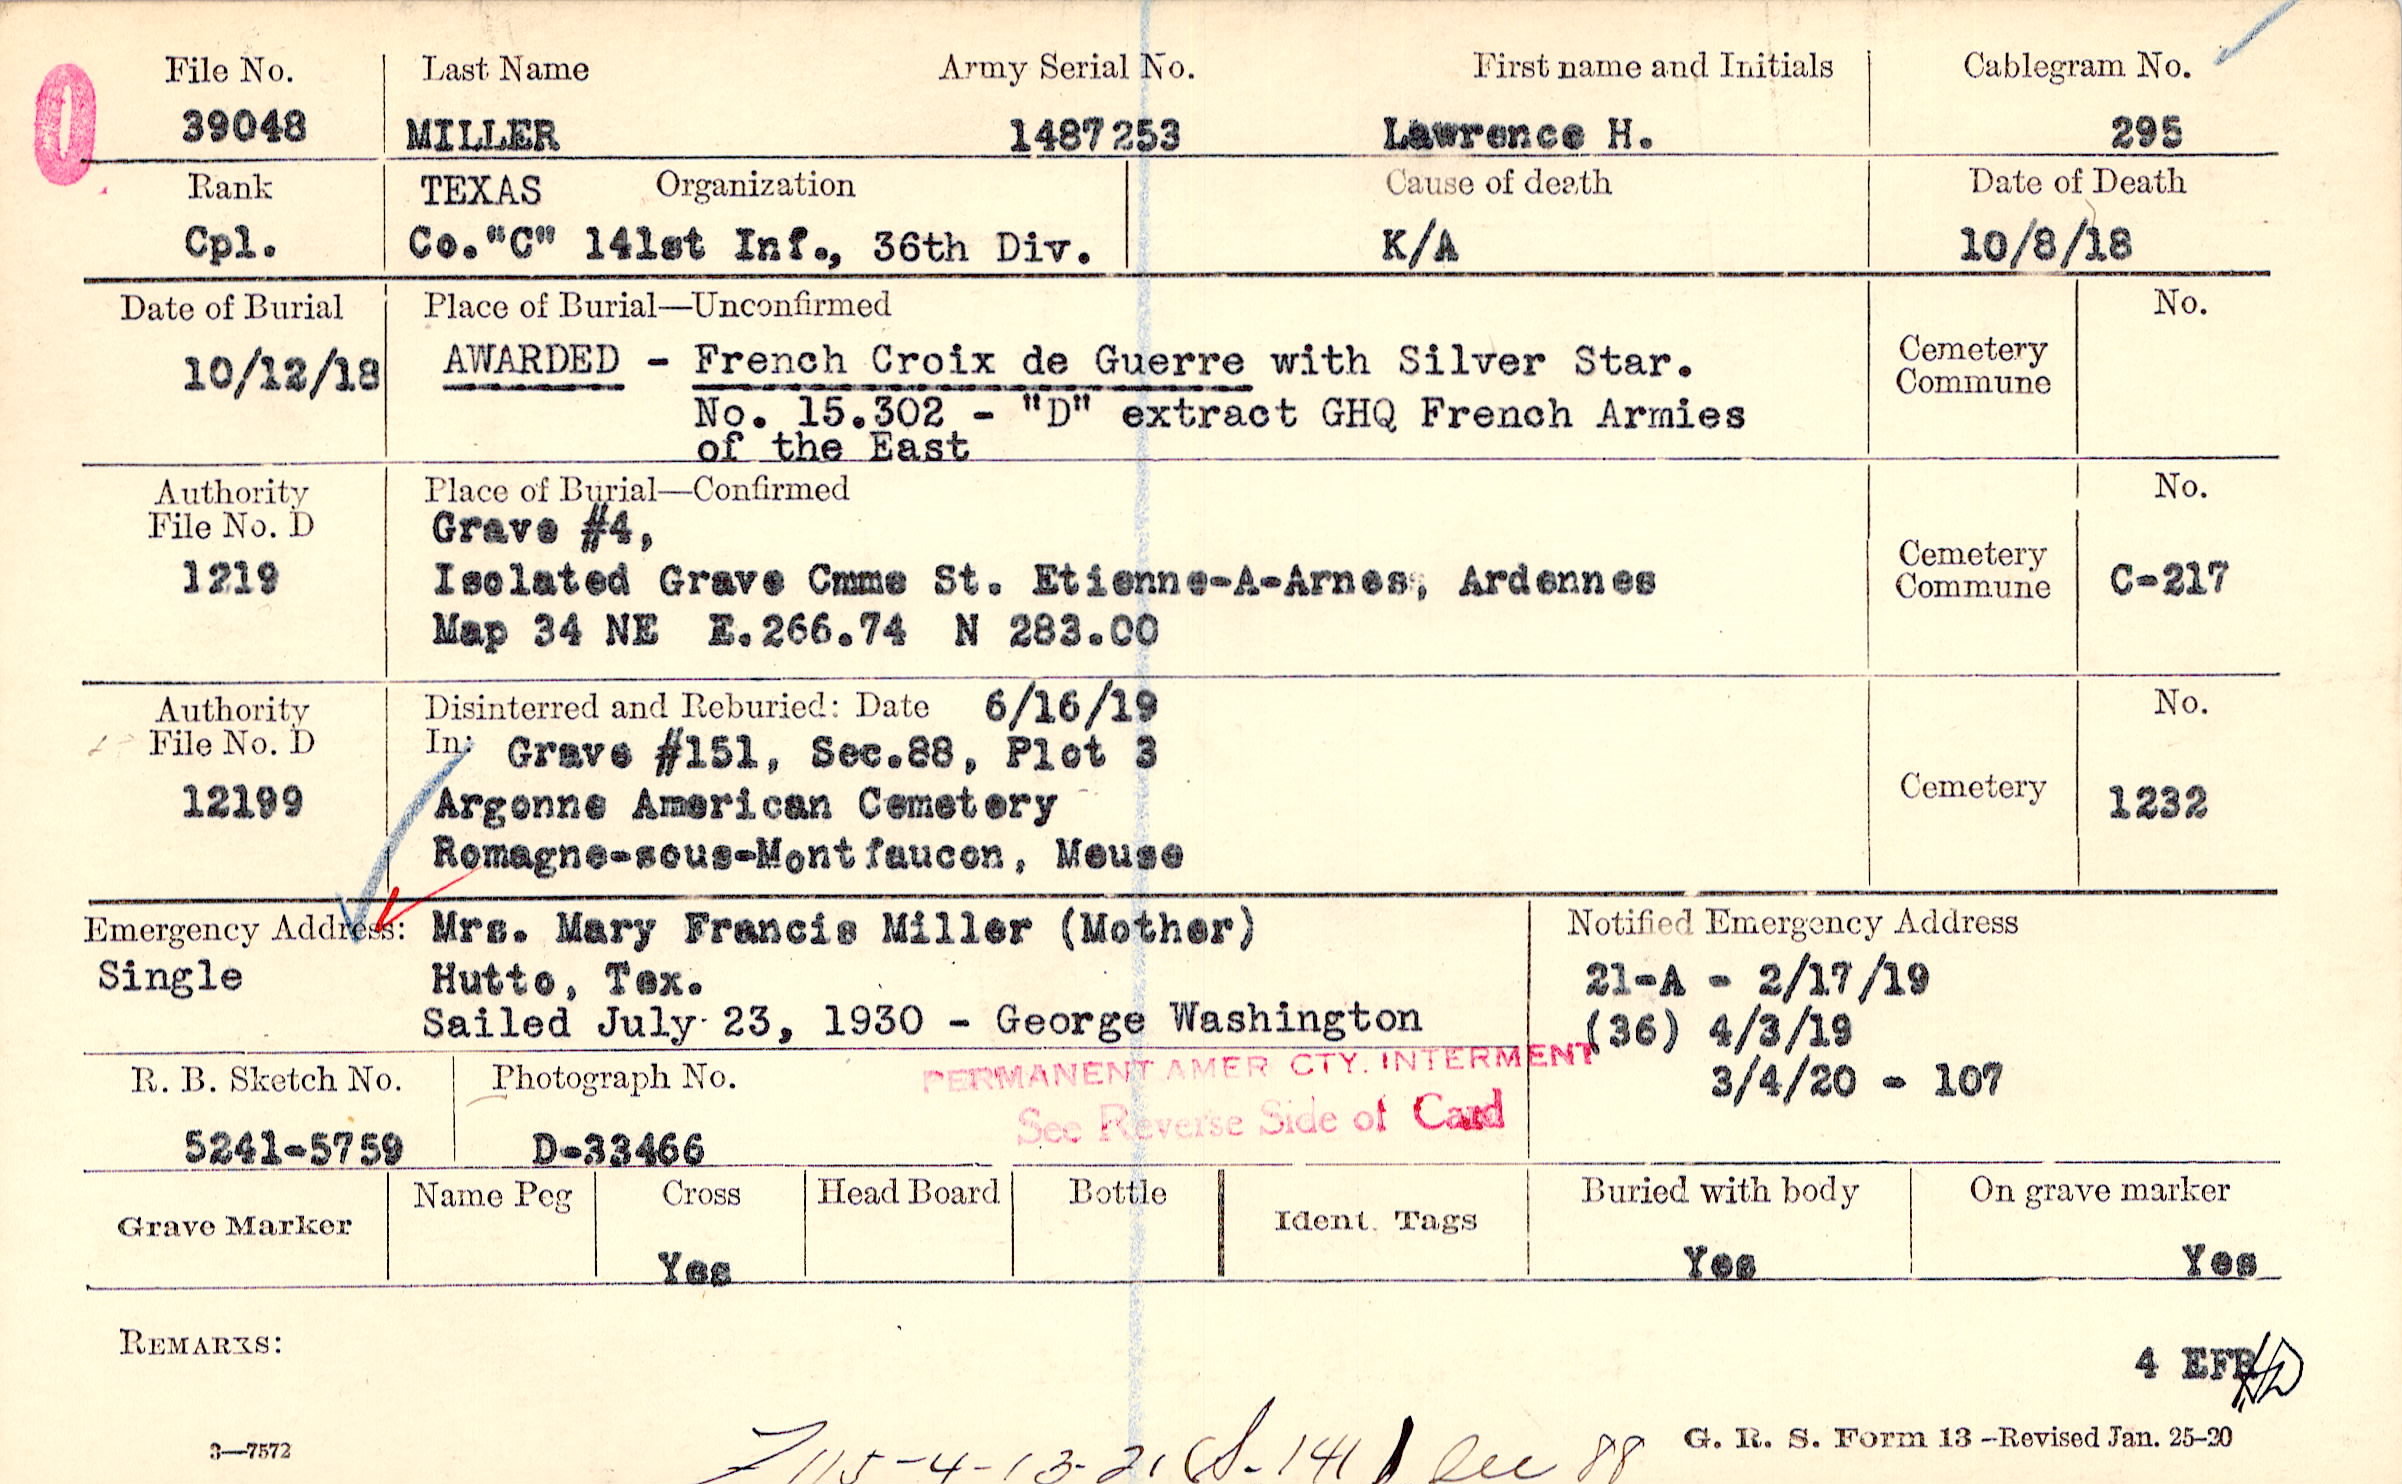 File No. Last Name Army Serial No. First name and Initials Cablegram No.
39048 MILLER 1487253 Lawrence H. 295
Rank TEXAS Organization Cause of death Date of Death
Cpl. Co."C" 141st Inf., 36th Div. K/A 10/8/18
Date of Burial Place of Burial—Unconfirmed No.
10/12/18 AWARDED - French Croix de Guerre with Silver Star. Cemetery
Commune
No. 15.302 - "D" extract GHQ French Armies
of the East
Authority Place of Burial—Confirmed No.
File No. D Grave #4,
1219 Isolated Grave Cmme St. Etienne-A-Arnes, Ardennes Cemetery
Commune C-217
Map 34 NE E.266.74 N 283.00
Authority Disinterred and Reburied: Date 6/16/19 No.
File No. D In: Grave #151, Sec.88, Plot 3
12199 Argonne American Cemetery Cemetery 1232
Romagne-sous-Montfaucon, Meuse
Emergency Address: Mrs. Mary Francis Miller (Mother) Notified Emergency Address
Single Hutto, Tex. 21-A - 2/17/19
Sailed July 23, 1930 - George Washington (36) 4/3/19
PERMANENT AMER CTY. INTERMENT
R. B. Sketch No. Photograph No. 3/4/20 - 107
See Reverse Side of Card
5241-5759 D-33466
Grave Marker Name Peg Cross Head Board Bottle Ident. Tags Buried with body On grave marker
Yes Yes Yes
REMARKS:
4 EFB
3—7572 G. R. S. Form 13-Revised Jan. 25-20
115-4-13-21 S-141 Sec 88